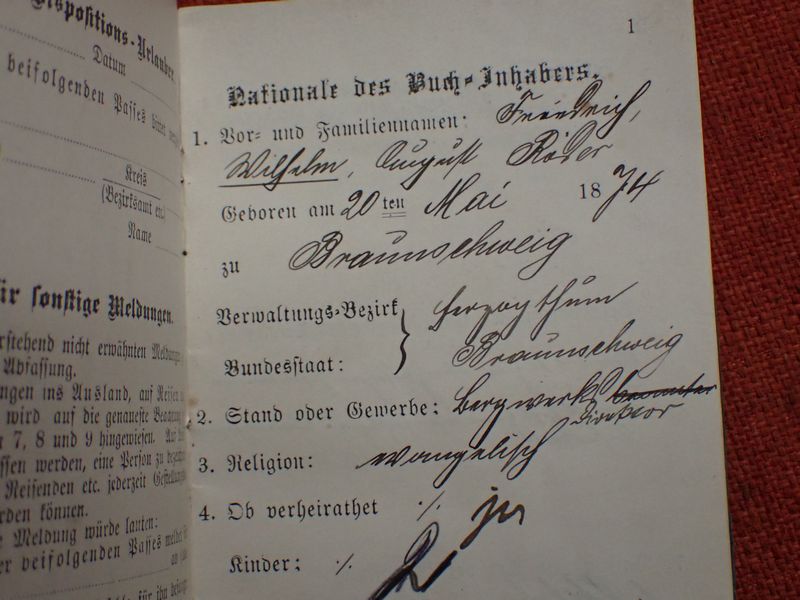 Dispositions-Urlauber.
Datum
beifolgenden Passes
Kreis
(Bezirksamt etc.)
Name
für sonstige Meldungen.
nicht erwähnten Meldungen
Abfassung.
ins Ausland, auf Reisen
wird auf die genaueste
7, 8 und 9 hingewiesen.
werden, eine Person zu
Reisenden etc. jederzeit
können.
Meldung würde lauten:
beifolgenden Passes meldet
1
Nationale des Buch-Inhabers.
1. Vor- und Familiennamen: Friedrich,
Wilhelm, August Röder
Geboren am 20ten Mai 1874
zu Braunschweig
Verwaltungs-Bezirk } Herzogthum
Bundesstaat: Braunschweig
2. Stand oder Gewerbe: Bergwerks beamter
Direktor
3. Religion: evangelisch
4. Ob verheirathet ./. ja
Kinder: ./. 2